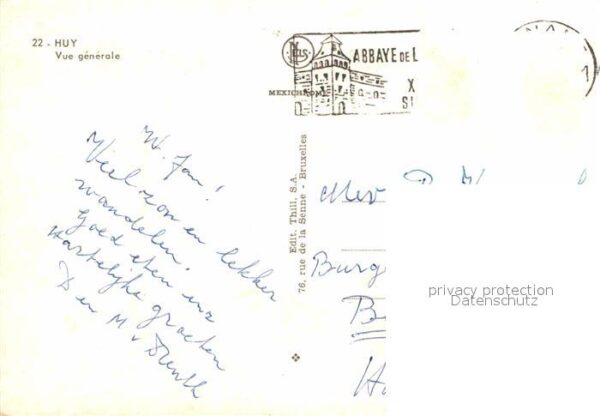 22 - HUY
Vue générale
NELS
MEXICHROME
ABBAYE DE L
X
SI
W. Jan!
Veel zon en lekker
wandelen.
Goed eten enz
Hartelijke groeten
D en M v Drenth
Edit. Thill, S.A.
76, rue de la Senne - Bruxelles
Mev
Burg
B
H
privacy protection
Datenschutz